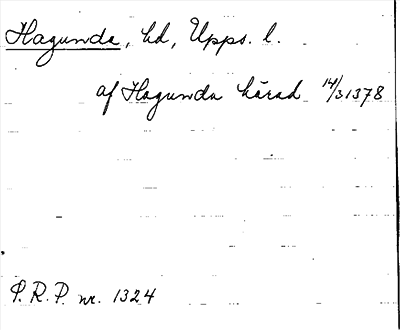 Hagunda, hd, Upps. l.
af Hagunda härad 14/3 1378
P.R.P. nr. 1324